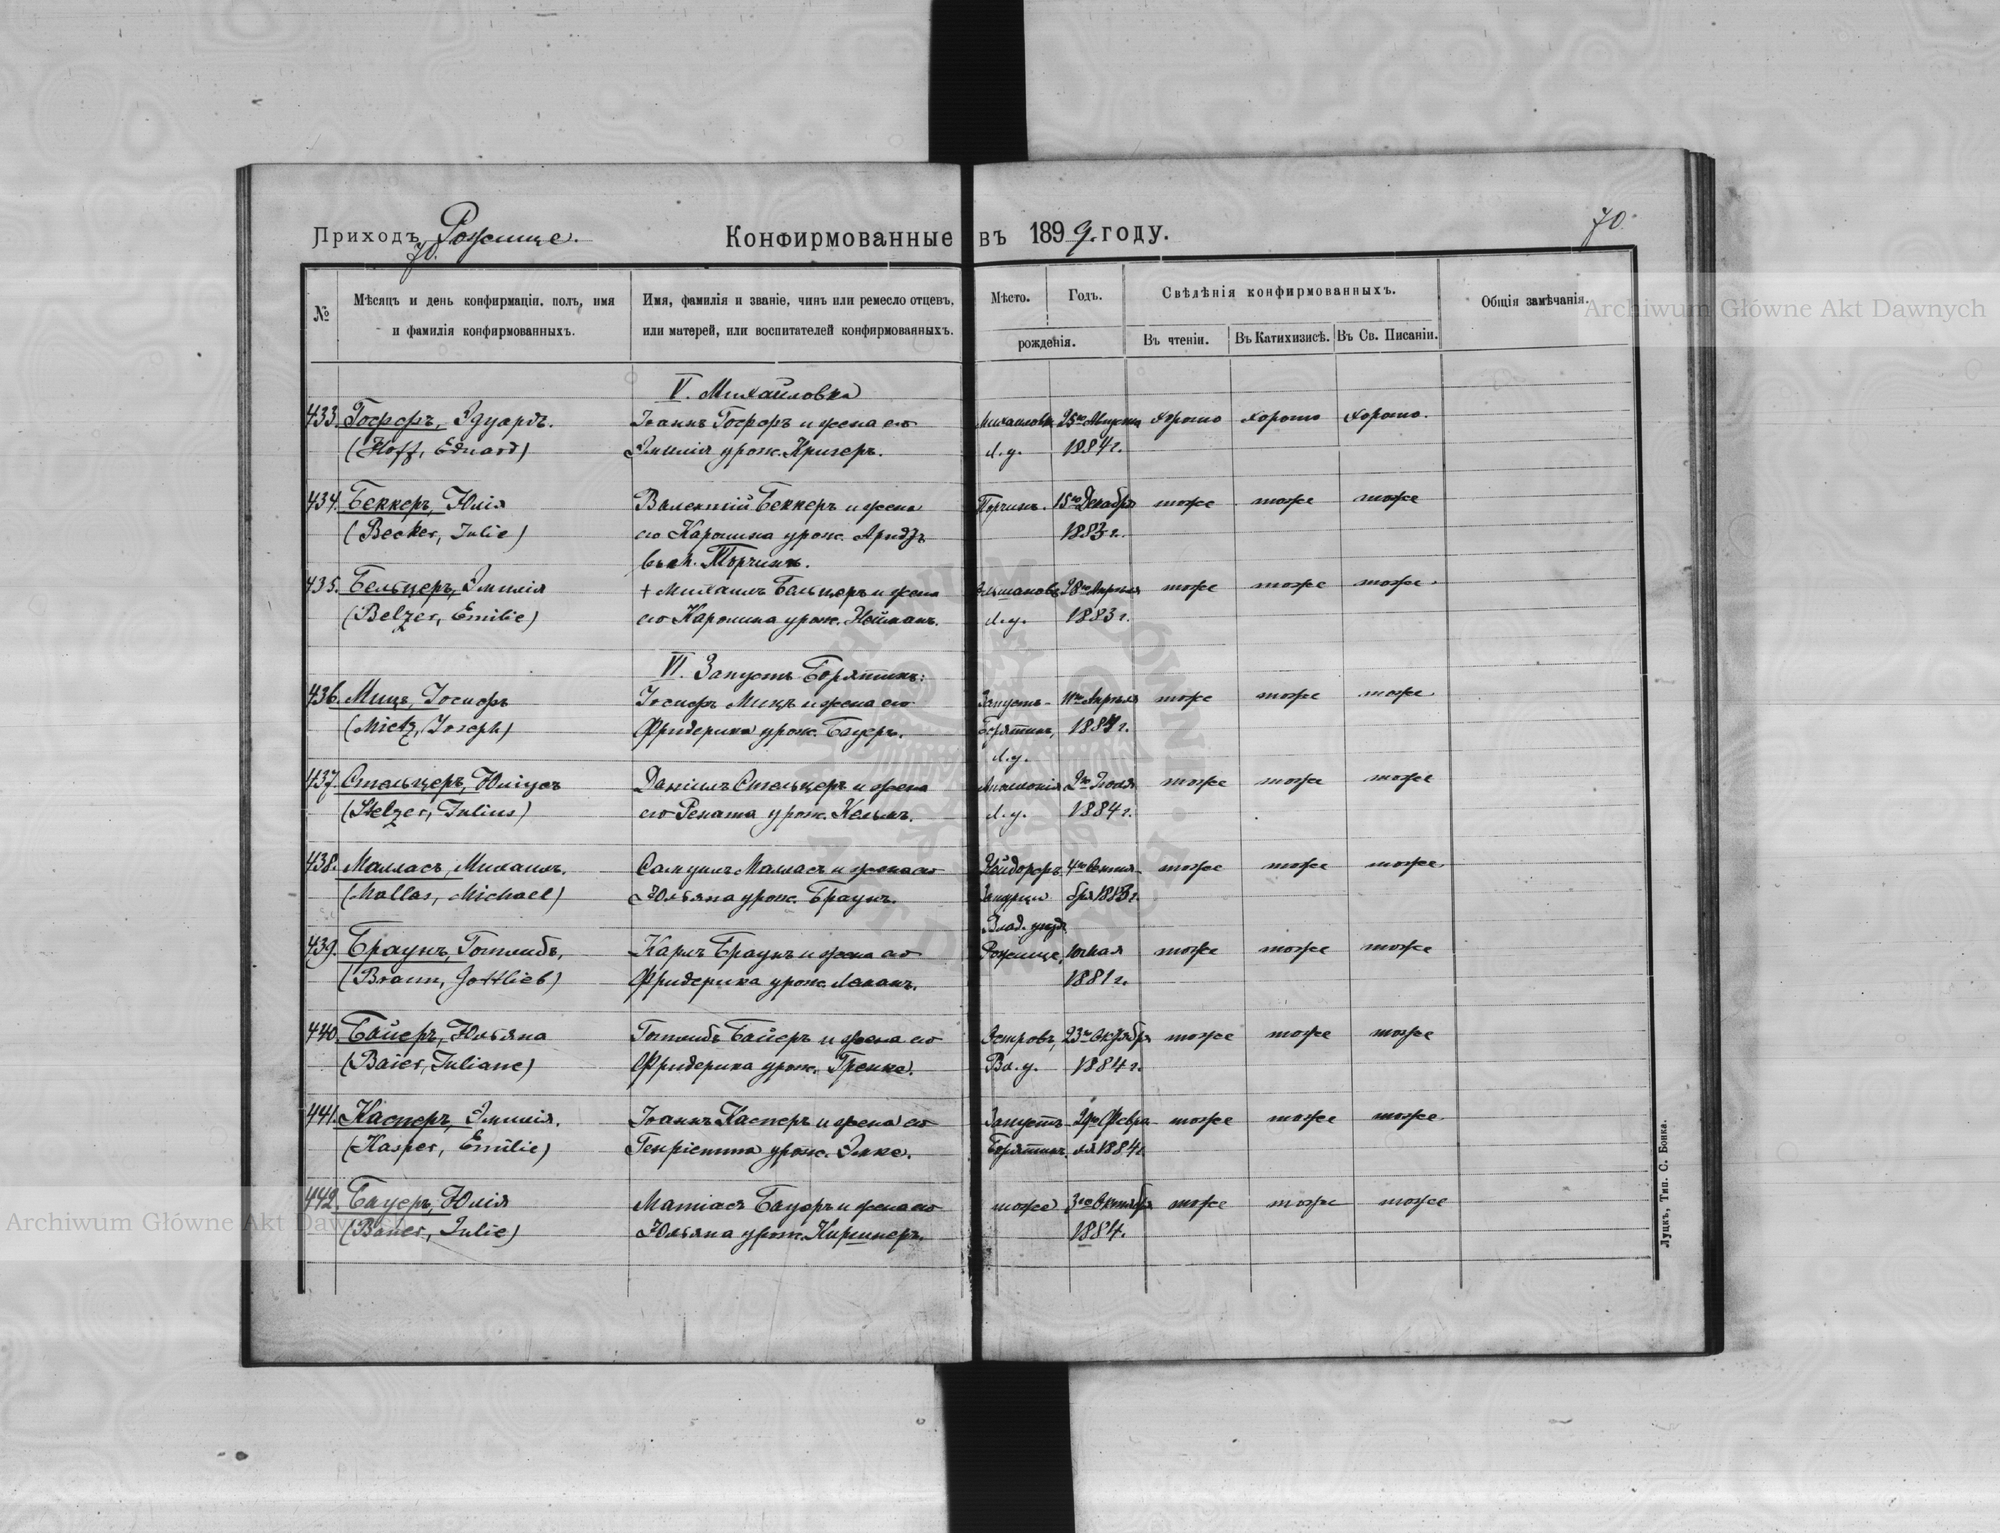 Приходъ Рожище.
Конфирмованные въ 1899. году.
70.
70.
№
Мѣсяцъ и день конфирмаціи, полъ, имя
и фамилія конфирмованныхъ.
Имя, фамилія и званіе, чинъ или ремесло отцевъ,
или матерей, или воспитателей конфирмованныхъ.
Мѣсто.
Годъ.
рожденія.
Свѣдѣнія конфирмованныхъ.
Въ чтеніи.
Въ Катихизисѣ.
Въ Св. Писаніи.
Общія замѣчанія.
V. Михайловка
433. Гоффъ, Эдуардъ. Іоаннъ Гоффъ и жена его Михайловк. 25го Августа хорошо хорошо хорошо.
(Hoff, Eduard) Эмилія урож. Кригеръ. Л. у. 1884 г.
434. Беккеръ, Юлія Валентій Беккеръ и жена Торчинъ. 15го Декабря тоже тоже тоже
(Becker, Julie) его Каролина урож. Арндъ 1883 г.
въ м. Торчинъ.
435. Бельцеръ, Эмилія + Михаилъ Бельцеръ и жена 28го Апрѣля тоже тоже тоже.
(Belzer, Emilie) его Каролина урож. Нейманъ. Л. у. 1883 г.
VI. Запустъ Борятинъ:
436. Мицъ, Іосифъ Іосифъ Мицъ и жена его Запустъ- 11го Апрѣля тоже тоже тоже
(Mietz, Joseph) Фридерика урож. Бауеръ. Борятинъ, 1884 г.
Л. у.
437. Стельцеръ, Юліусъ Даніилъ Стельцеръ и жена Аполонія 2го Іюля тоже тоже тоже
(Stelzer, Julius) его Рената урож. Кельмъ. Л. у. 1884 г.
438. Малласъ, Михаилъ. Самуилъ Малласъ и жена его Нейдорфъ 4го Сентя- тоже тоже тоже.
(Mallas, Michael) Юльяна урож. Браунъ. бря 1883 г.
Влад. уѣзд.
439. Браунъ, Готлибъ, Карлъ Браунъ и жена его Рожище, Мая тоже тоже тоже
(Braun, Gottlieb) Фридерика урож. 1881 г.
440. Байеръ, Юльяна Готлибъ Байеръ и жена его Островъ, 23го Октября тоже тоже тоже
(Baier, Juliane) Фридерика урож. Гренке. Вл. у. 1884 г.
441. Касперъ, Эмилія. Іоаннъ Касперъ и жена его Запустъ 29го Февра- тоже тоже тоже.
(Kasper, Emilie) Генріетта урож. Элке. Борятинъ. ля 1884 г.
442. Бауеръ, Юлія Матіасъ Бауеръ и жена его тоже 3го Октября тоже тоже тоже
(Bauer, Julie) Юльяна урож. Киршнеръ. 1884.
Луцкъ, Тип. С. Бонка.
Archiwum Główne Akt Dawnych
Archiwum Główne Akt Dawnych